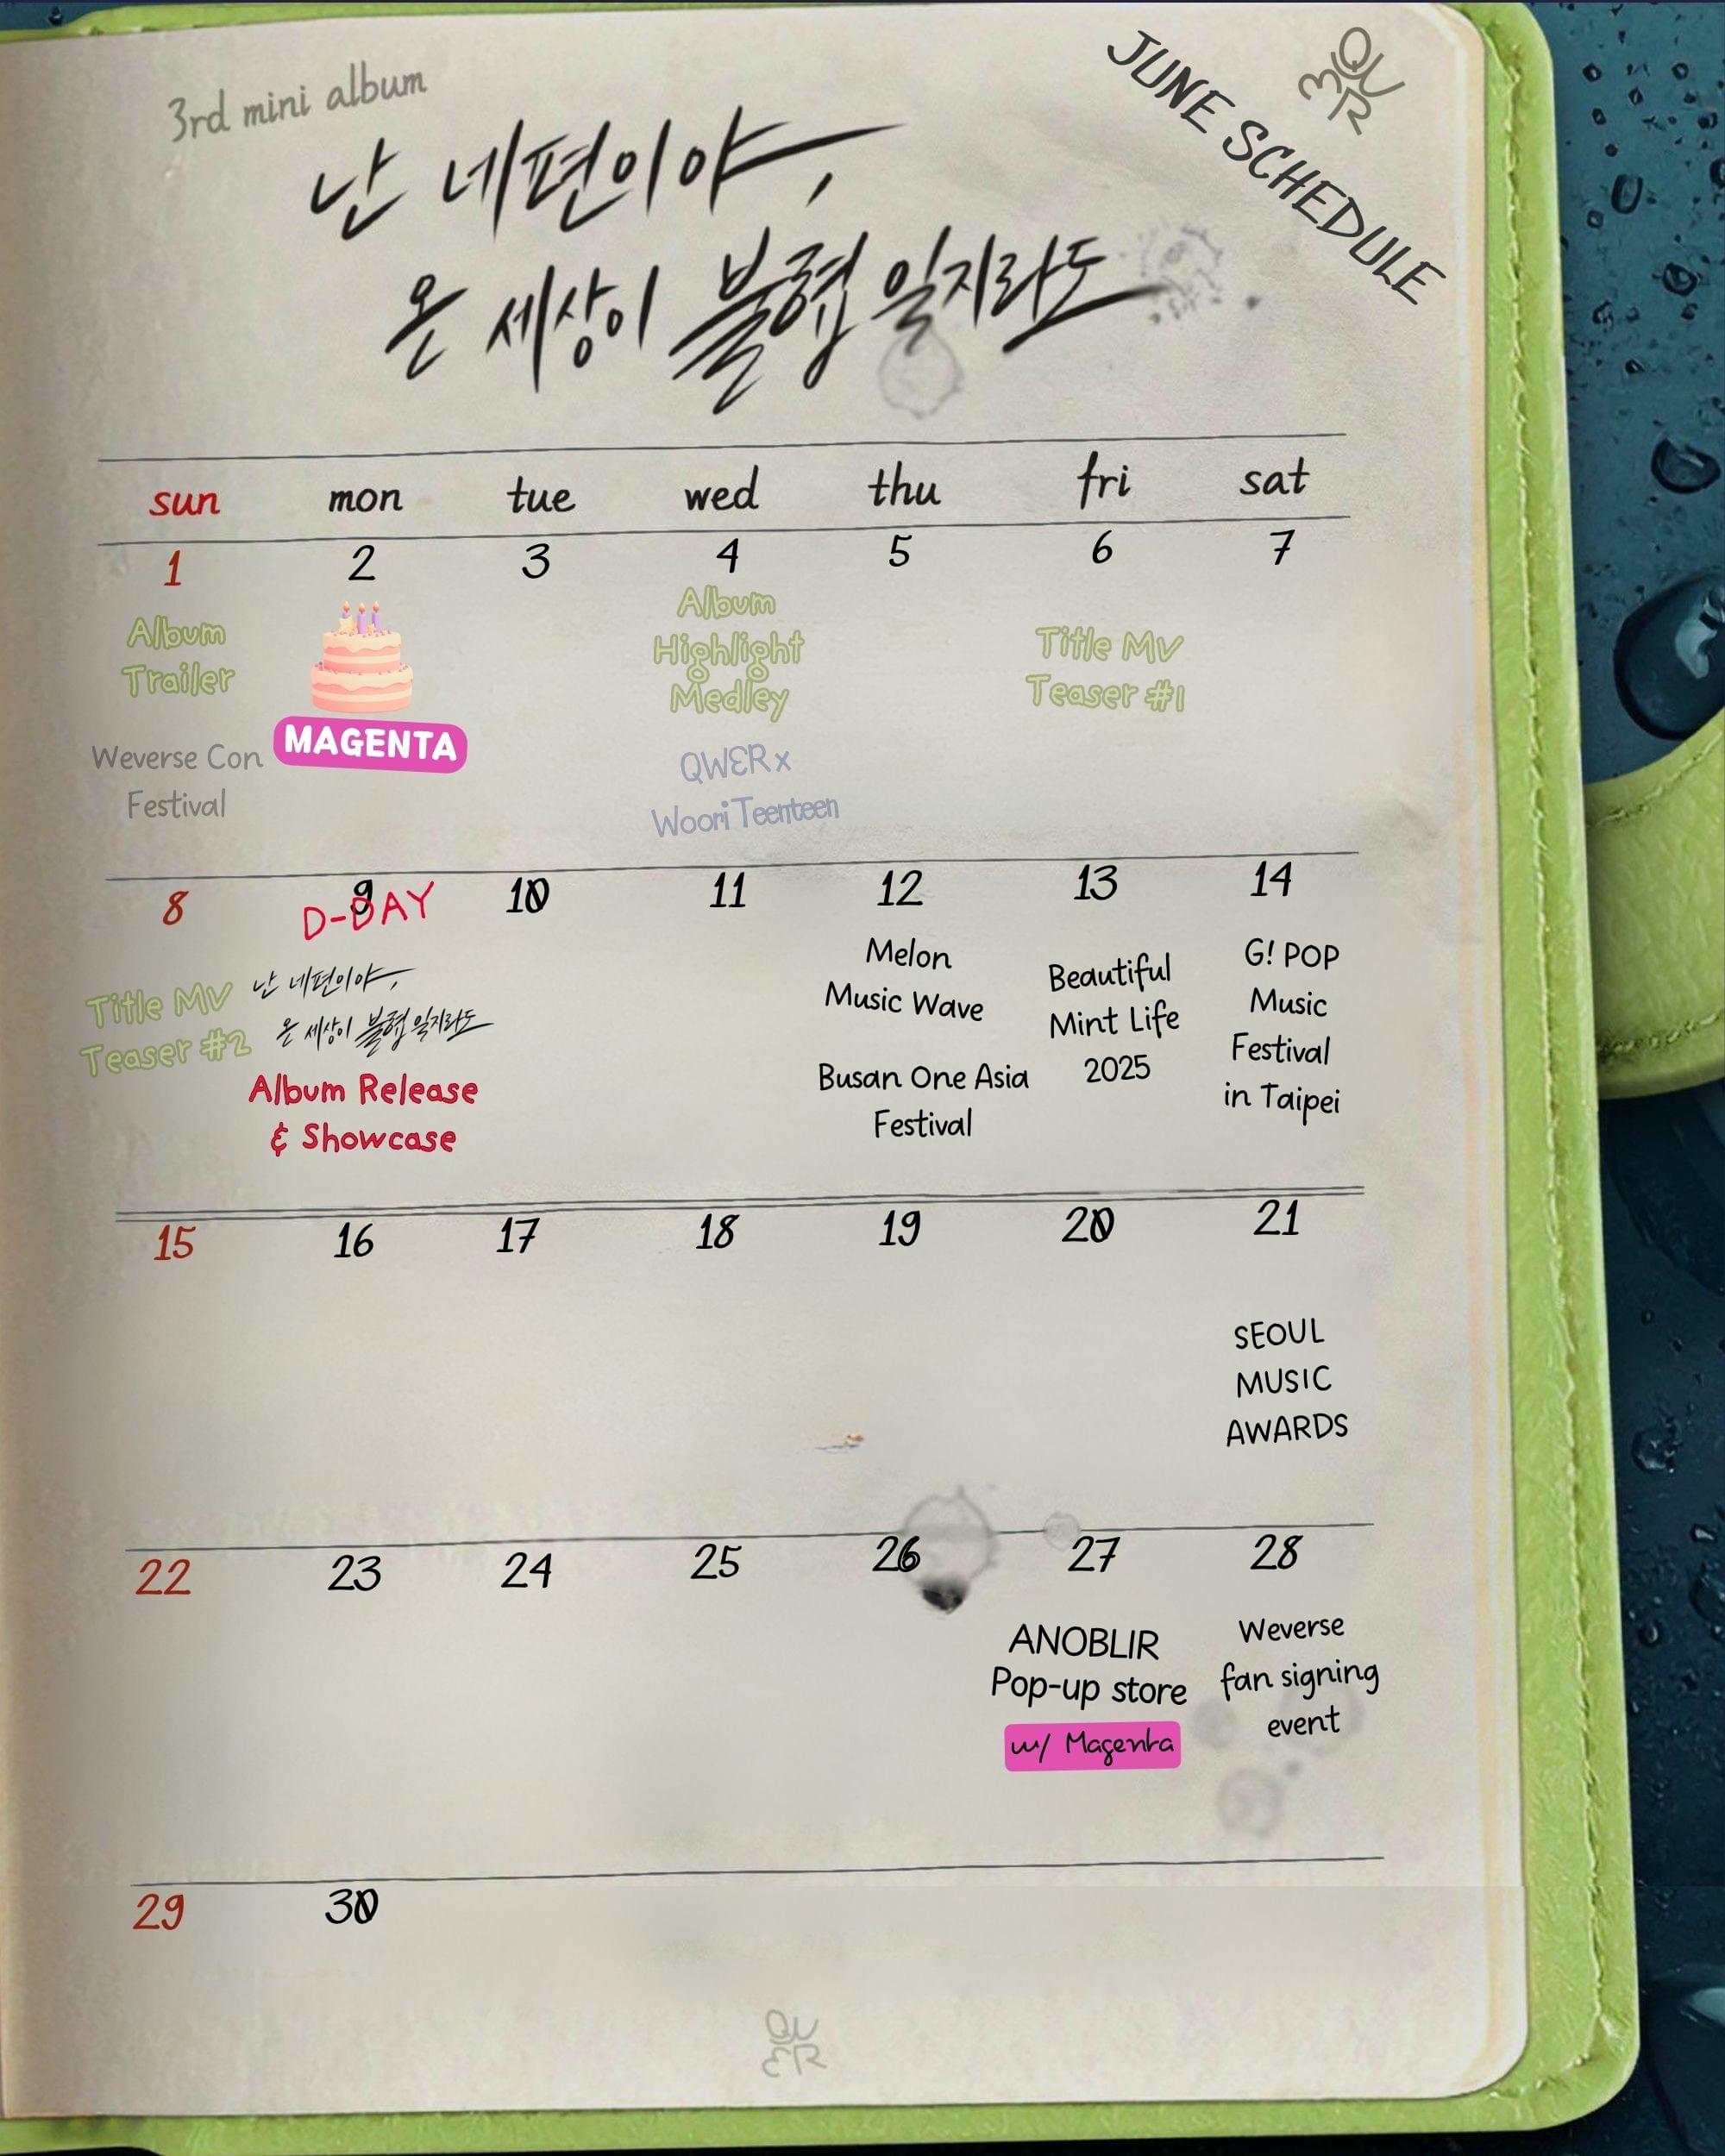 3rd mini album
QWER
JUNE SCHEDULE
난 네편이야,
온 세상이 불협일지라도
sun mon tue wed thu fri sat
1 2 3 4 5 6 7
Album
Trailer
Weverse Con
Festival
MAGENTA
Album
Highlight
Medley
QWER x
Woori Teenteen
Title MV
Teaser #1
8 9 10 11 12 13 14
Title MV
Teaser #2
D-DAY
난 네편이야,
온 세상이 불협일지라도
Album Release
& Showcase
Melon
Music Wave
Busan One Asia
Festival
Beautiful
Mint Life
2025
G! POP
Music
Festival
in Taipei
15 16 17 18 19 20 21
SEOUL
MUSIC
AWARDS
22 23 24 25 26 27 28
ANOBLIR
Pop-up store
w/ Magenta
Weverse
fan signing
event
29 30
QWER